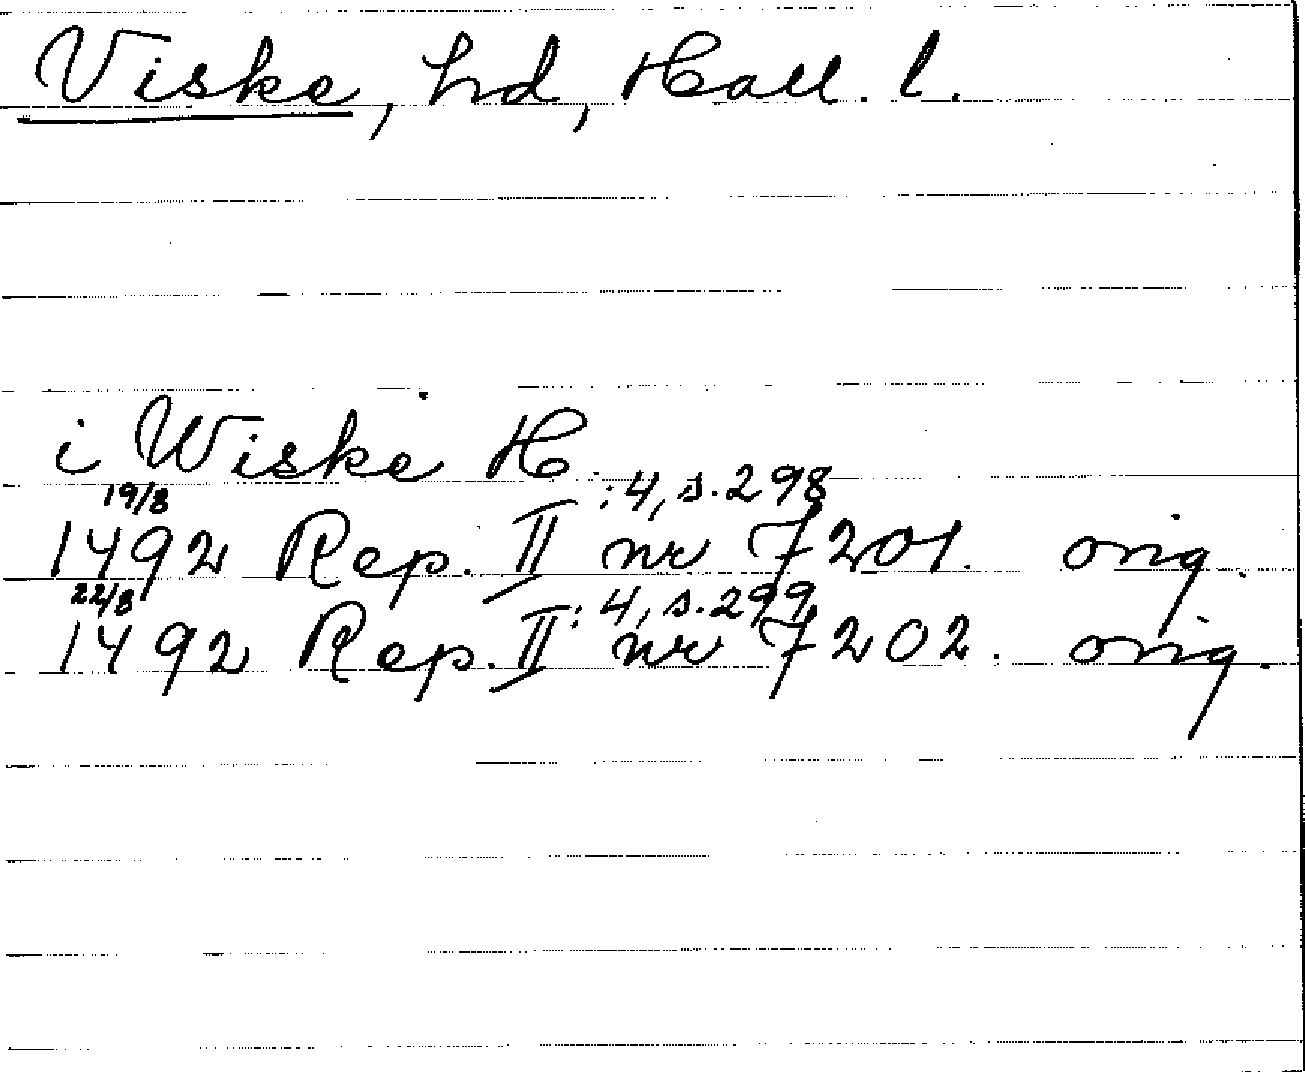 Viske, hd, Hall. l.
i Wiske H
19/8 :4, s. 298
1492 Rep. II nr 7201. orig.
22/8 :4, s. 299
1492 Rep. II nr 7202. orig.